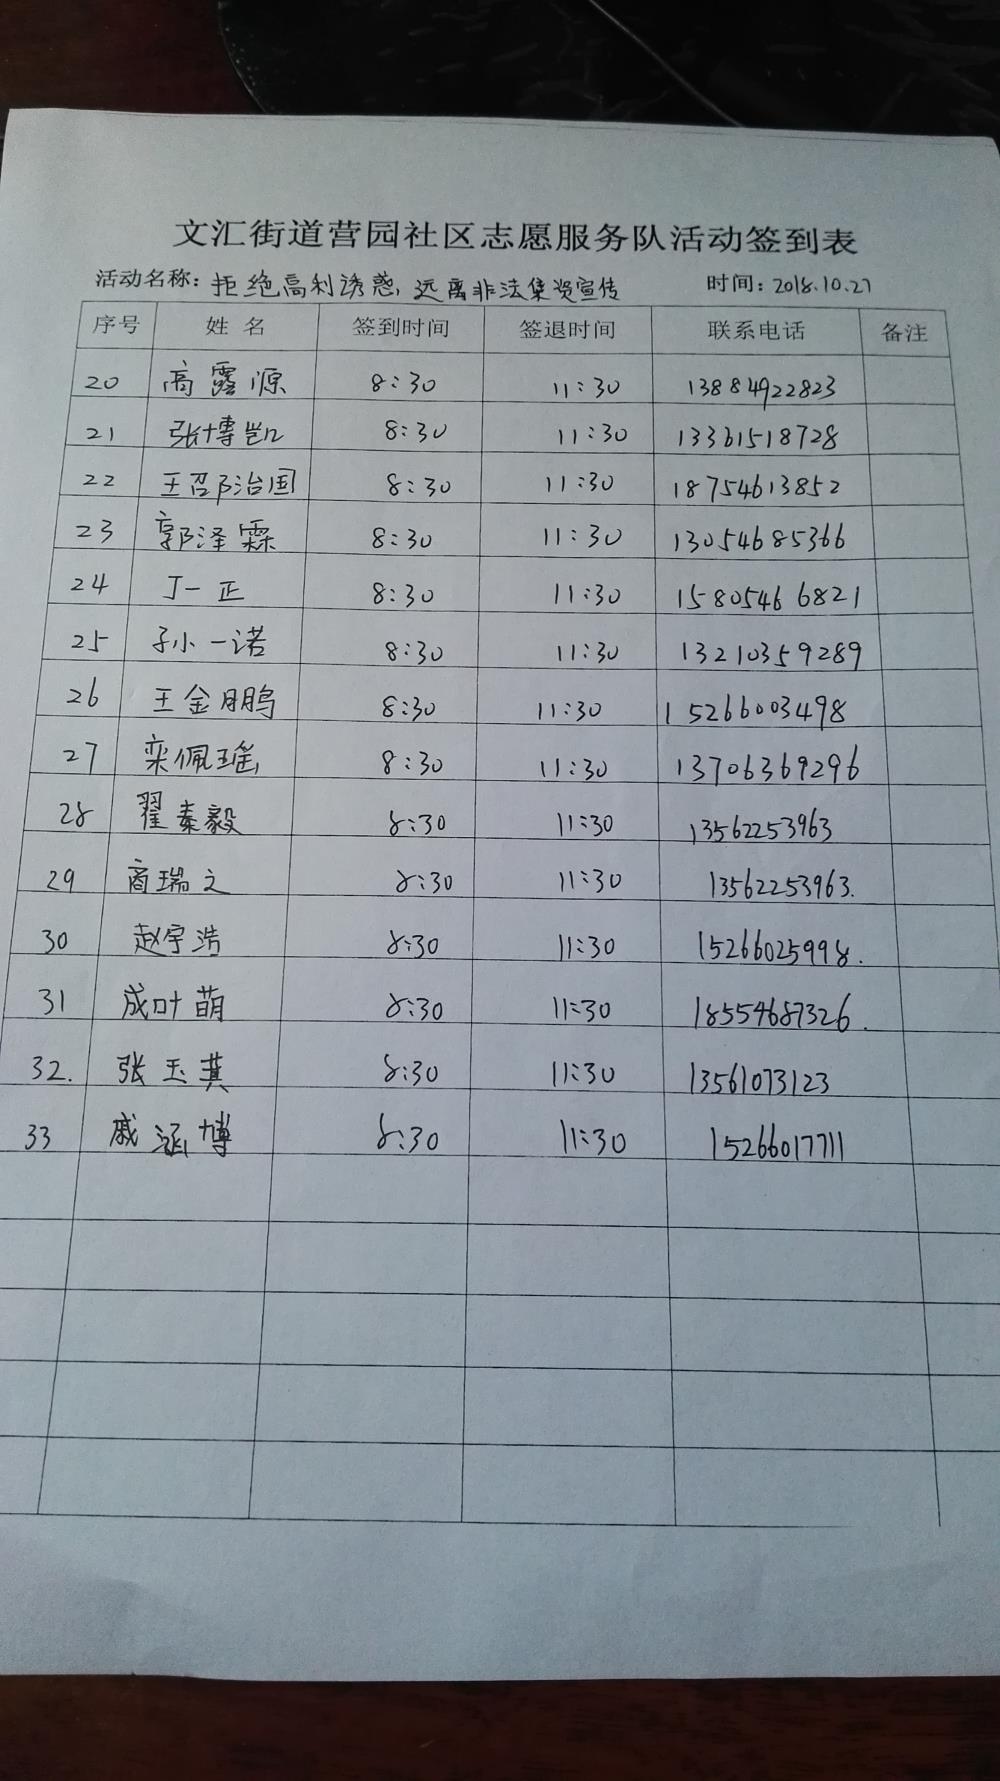 文汇街道营园社区志愿服务队活动签到表
活动名称：拒绝高利诱惑，远离非法集资宣传 时间：2018.10.27
序号 姓名 签到时间 签退时间 联系电话 备注
20 高露源 8:30 11:30 13884922823
21 张博凯 8:30 11:30 13361518728
22 王邵治国 8:30 11:30 18754613852
23 郭泽霖 8:30 11:30 13054685366
24 丁一正 8:30 11:30 15805466821
25 孙一诺 8:30 11:30 13210359289
26 王金鹏 8:30 11:30 15266003498
27 栾佩瑶 8:30 11:30 13706369296
28 翟秦毅 8:30 11:30 13562253963
29 商瑞之 8:30 11:30 13562253963.
30 赵宇浩 8:30 11:30 15266025998.
31 成叶萌 8:30 11:30 18554687326.
32. 张玉萁 8:30 11:30 13561073123
33 戚涵博 8:30 11:30 15266017711